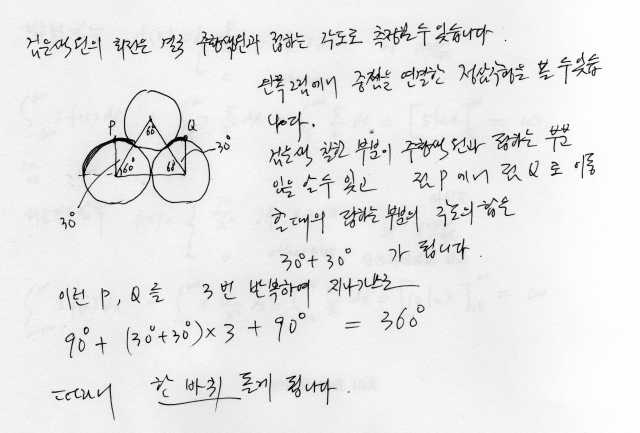 검은색 원의 회전은 결국 주황색원과 접하는 각도로 측정될 수 있습니다.
왼쪽 그림에서 중점을 연결한 정삼각형을 볼 수 있습
니다.
검은색 칠한 부분이 주황색 원과 접하는 부분
임을 알 수 있고 점 P 에서 점 Q 로 이동
할 때의 접하는 부분의 각도의 합은
30°+30° 가 됩니다.
P
Q
60°
60°
60
30°
30°
이런 P, Q 를 3번 반복하여 지나가므로
90°+ (30°+30°)×3 + 90° = 360°
따라서 한 바퀴 돌게 됩니다.